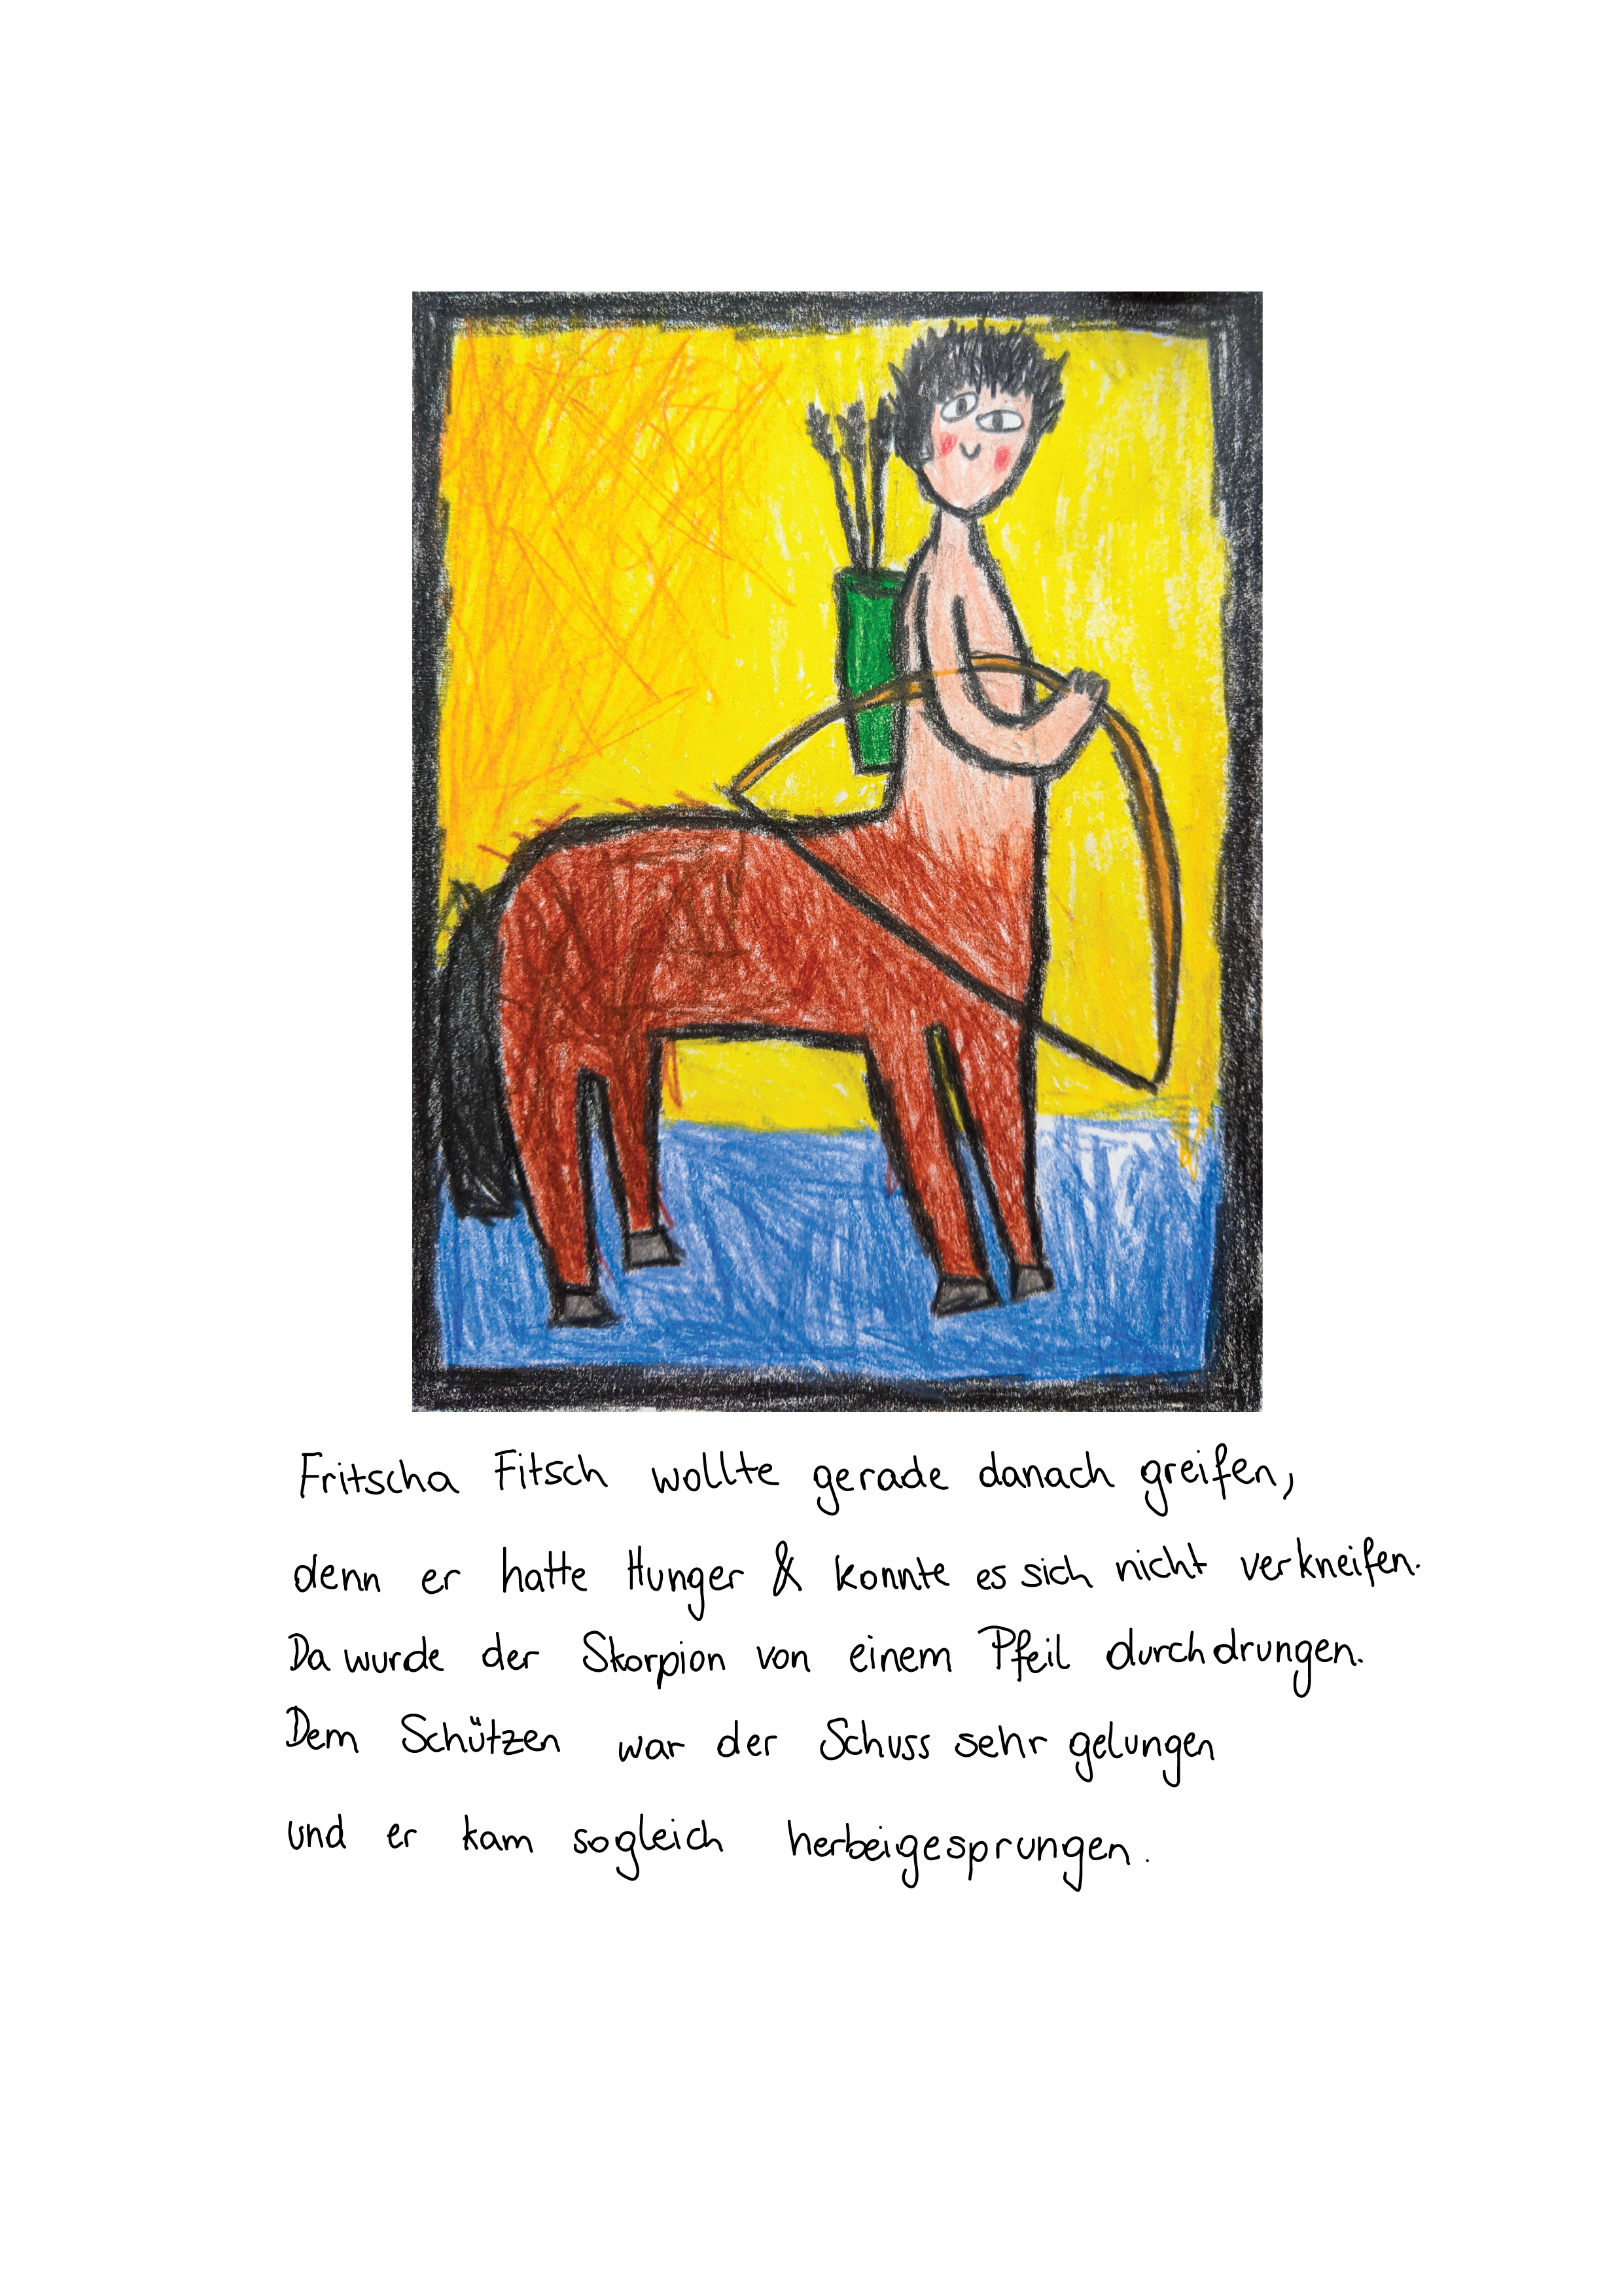 Fritscha Fitsch wollte gerade danach greifen,
denn er hatte Hunger & konnte es sich nicht verkneifen.
Da wurde der Skorpion von einem Pfeil durchdrungen.
Dem Schützen war der Schuss sehr gelungen
und er kam sogleich herbeigesprungen.